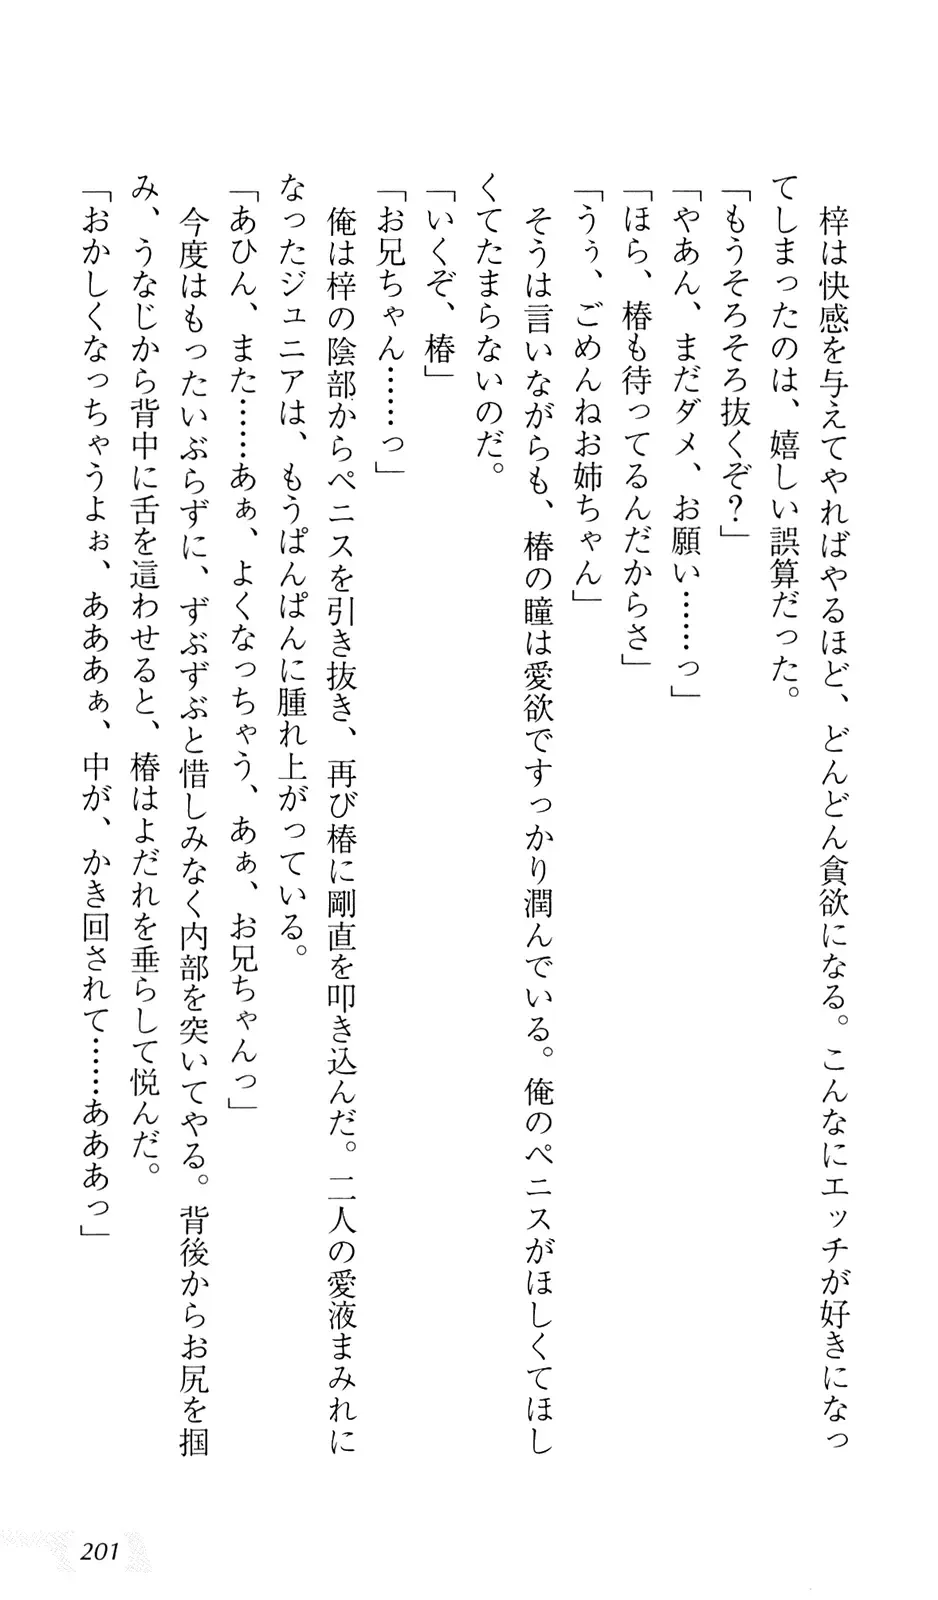 梓は快感を与えてやればやるほど、どんどん貪欲になる。こんなにエッチが好きになっ
てしまったのは、嬉しい誤算だった。
「もうそろそろ抜くぞ？」
「やあん、まだダメ、お願い……っ」
「ほら、椿も待ってるんだからさ」
「うぅ、ごめんねお姉ちゃん」
そうは言いながらも、椿の瞳は愛欲ですっかり潤んでいる。俺のペニスがほしくてほし
くてたまらないのだ。
「いくぞ、椿」
「お兄ちゃん……っ」
俺は梓の陰部からペニスを引き抜き、再び椿に剛直を叩き込んだ。二人の愛液まみれに
なったジュニアは、もうぱんぱんに腫れ上がっている。
「あひん、また……あぁ、よくなっちゃう、あぁ、お兄ちゃんっ」
今度はもったいぶらずに、ずぶずぶと惜しみなく内部を突いてやる。背後からお尻を掴
み、うなじから背中に舌を這わせると、椿はよだれを垂らして悦んだ。
「おかしくなっちゃうよぉ、あああぁ、中が、かき回されて……あああっ」
201